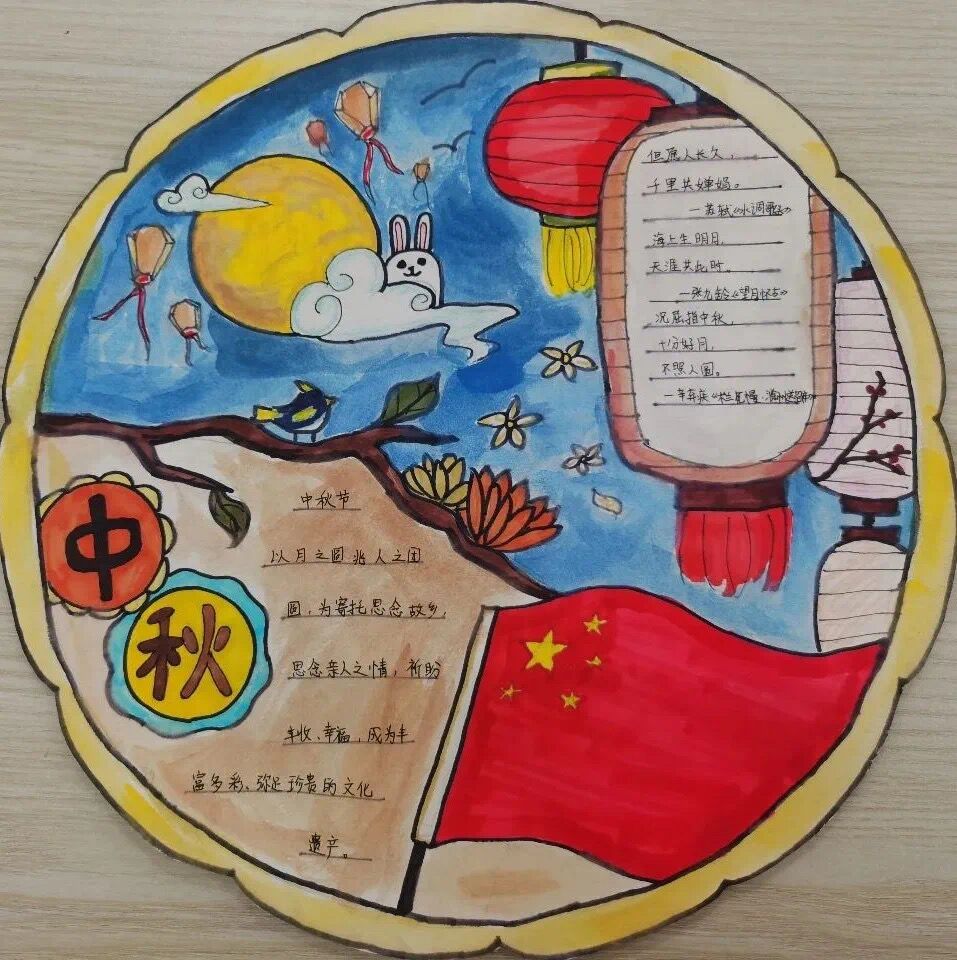 但愿人长久，
千里共婵娟。
—苏轼《水调歌头》
海上生明月，
天涯共此时。
—张九龄《望月怀古》
况屈指中秋，
十分好月，
不照人圆。
—辛弃疾
中
秋
中秋节
以月之圆兆人之团
圆，为寄托思念故乡，
思念亲人之情，祈盼
丰收、幸福，成为丰
富多彩、弥足珍贵的文化
遗产。